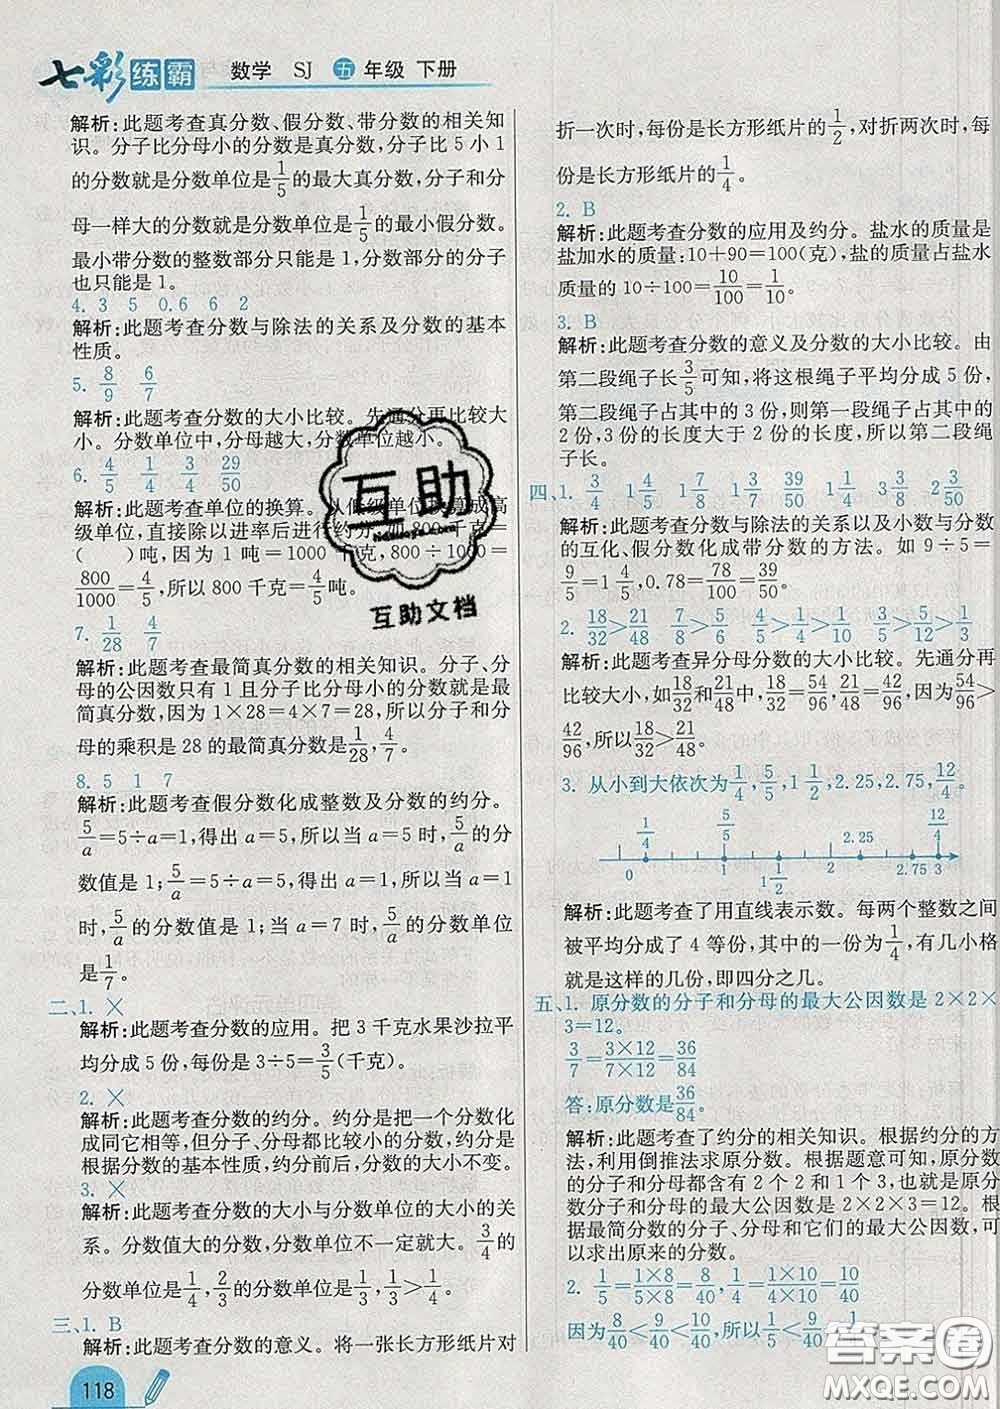 七彩练霸 数学 SJ 五年级 下册
解析:此题考查真分数、假分数、带分数的相关知
识。分子比分母小的分数是真分数,分子比 5 小 1
的分数就是分数单位是1/5的最大真分数,分子和分
母一样大的分数就是分数单位是1/5的最小假分数。
最小带分数的整数部分只能是1,分数部分的分子
也只能是 1。
4. 3 5 0.6 6 2
解析:此题考查分数与除法的关系及分数的基本
性质。
5. 8/9 6/7
解析:此题考查分数的大小比较。先通分再比较大
小。分数单位中,分母越大,分数单位越小。
6. 4/5 1/4 3/4 29/50
解析:此题考查单位的换算。从低级单位换算成高
级单位,直接除以进率后进行约分,如 800 千克=
( )吨,因为 1 吨=1000 千克,800÷1000=
800/1000=4/5,所以 800 千克=4/5吨。
7. 1/28 4/7
解析:此题考查最简真分数的相关知识。分子、分
母的公因数只有 1 且分子比分母小的分数就是最
简真分数,因为 1×28=4×7=28,所以分子和分
母的乘积是 28 的最简真分数是1/28,4/7。
8. 5 1 7
解析:此题考查假分数化成整数及分数的约分。
5/a=5÷a=1,得出 a=5,所以当 a=5 时,5/a的分
数值是 1;5/a=5÷a=5,得出 a=1,所以当 a=1
时,5/a的分数值是 1;当 a=7 时,5/a的分数单位
是1/7。
二、1. ×
解析:此题考查分数的应用。把 3 千克水果沙拉平
均分成 5 份,每份是 3÷5=3/5(千克)。
2. ×
解析:此题考查分数的约分。约分是把一个分数化
成同它相等,但分子、分母都比较小的分数,约分是
根据分数的基本性质,约分前后,分数的大小不变。
3. ×
解析:此题考查分数的大小与分数单位的大小的关
系。分数值大的分数,分数单位不一定就大。3/4的
分数单位是1/4,2/3的分数单位是1/3,1/3>1/4。
三、1. B
解析:此题考查分数的意义。将一张长方形纸片对
118
折一次时,每份是长方形纸片的1/2,对折两次时,每
份是长方形纸片的1/4。
2. B
解析:此题考查分数的应用及约分。盐水的质量是
盐加水的质量:10+90=100(克),盐的质量占盐水
质量的 10÷100=10/100=1/10。
3. B
解析:此题考查分数的意义及分数的大小比较。由
第二段绳子长3/5可知,将这根绳子平均分成 5 份,
第二段绳子占其中的 3 份,则第一段绳子占其中的
2 份,3 份的长度大于 2 份的长度,所以第二段绳
子长。
四、1. 3/4 1 4/5 1 7/8 1 1/2 3 3/8 2 3/50
解析:此题考查分数与除法的关系以及小数与分数
的互化、假分数化成带分数的方法。如 9÷5=
9/5=1 4/5,0.78=78/100=39/50。
2. 18/32>21/48 21/48>5/16 5/16<6/12 6/12>1/3
解析:此题考查异分母分数的大小比较。先通分再
比较大小,如18/32和21/48中,18/32=54/96,21/48=42/96,因为54/96>
42/96,所以18/32>21/48。
3. 从小到大依次为1/4,5/5,1 1/2,2.25,2.75,12/4。
1/4 5/5 2.25 12/4
0 1 1 1/2 2 2.75 3
解析:此题考查了用直线表示数。每两个整数之间
被平均分成了 4 等份,其中的一份为1/4,有几小格
就是这样的几份,即四分之几。
五、1. 原分数的分子和分母的最大公因数是 2×2×
3=12。
3/7=3×12/7×12=36/84
答:原分数是36/84。
解析:此题考查了约分的相关知识。根据约分的方
法,利用倒推法求原分数。根据题意可知,原分数
的分子和分母都含有 2 个 2 和 1 个 3,也就是原分
数分子和分母的最大公因数是 2×2×3=12。根
据最简分数的分子、分母和它们的最大公因数,可
以求出原来的分数。
2. 1/5=1×8/5×8=8/40,1/4=1×10/4×10=10/40
因为8/40<9/40<10/40,所以1/5<9/40<1/4。
互助
互助文档
答案圈
MXQE.COM